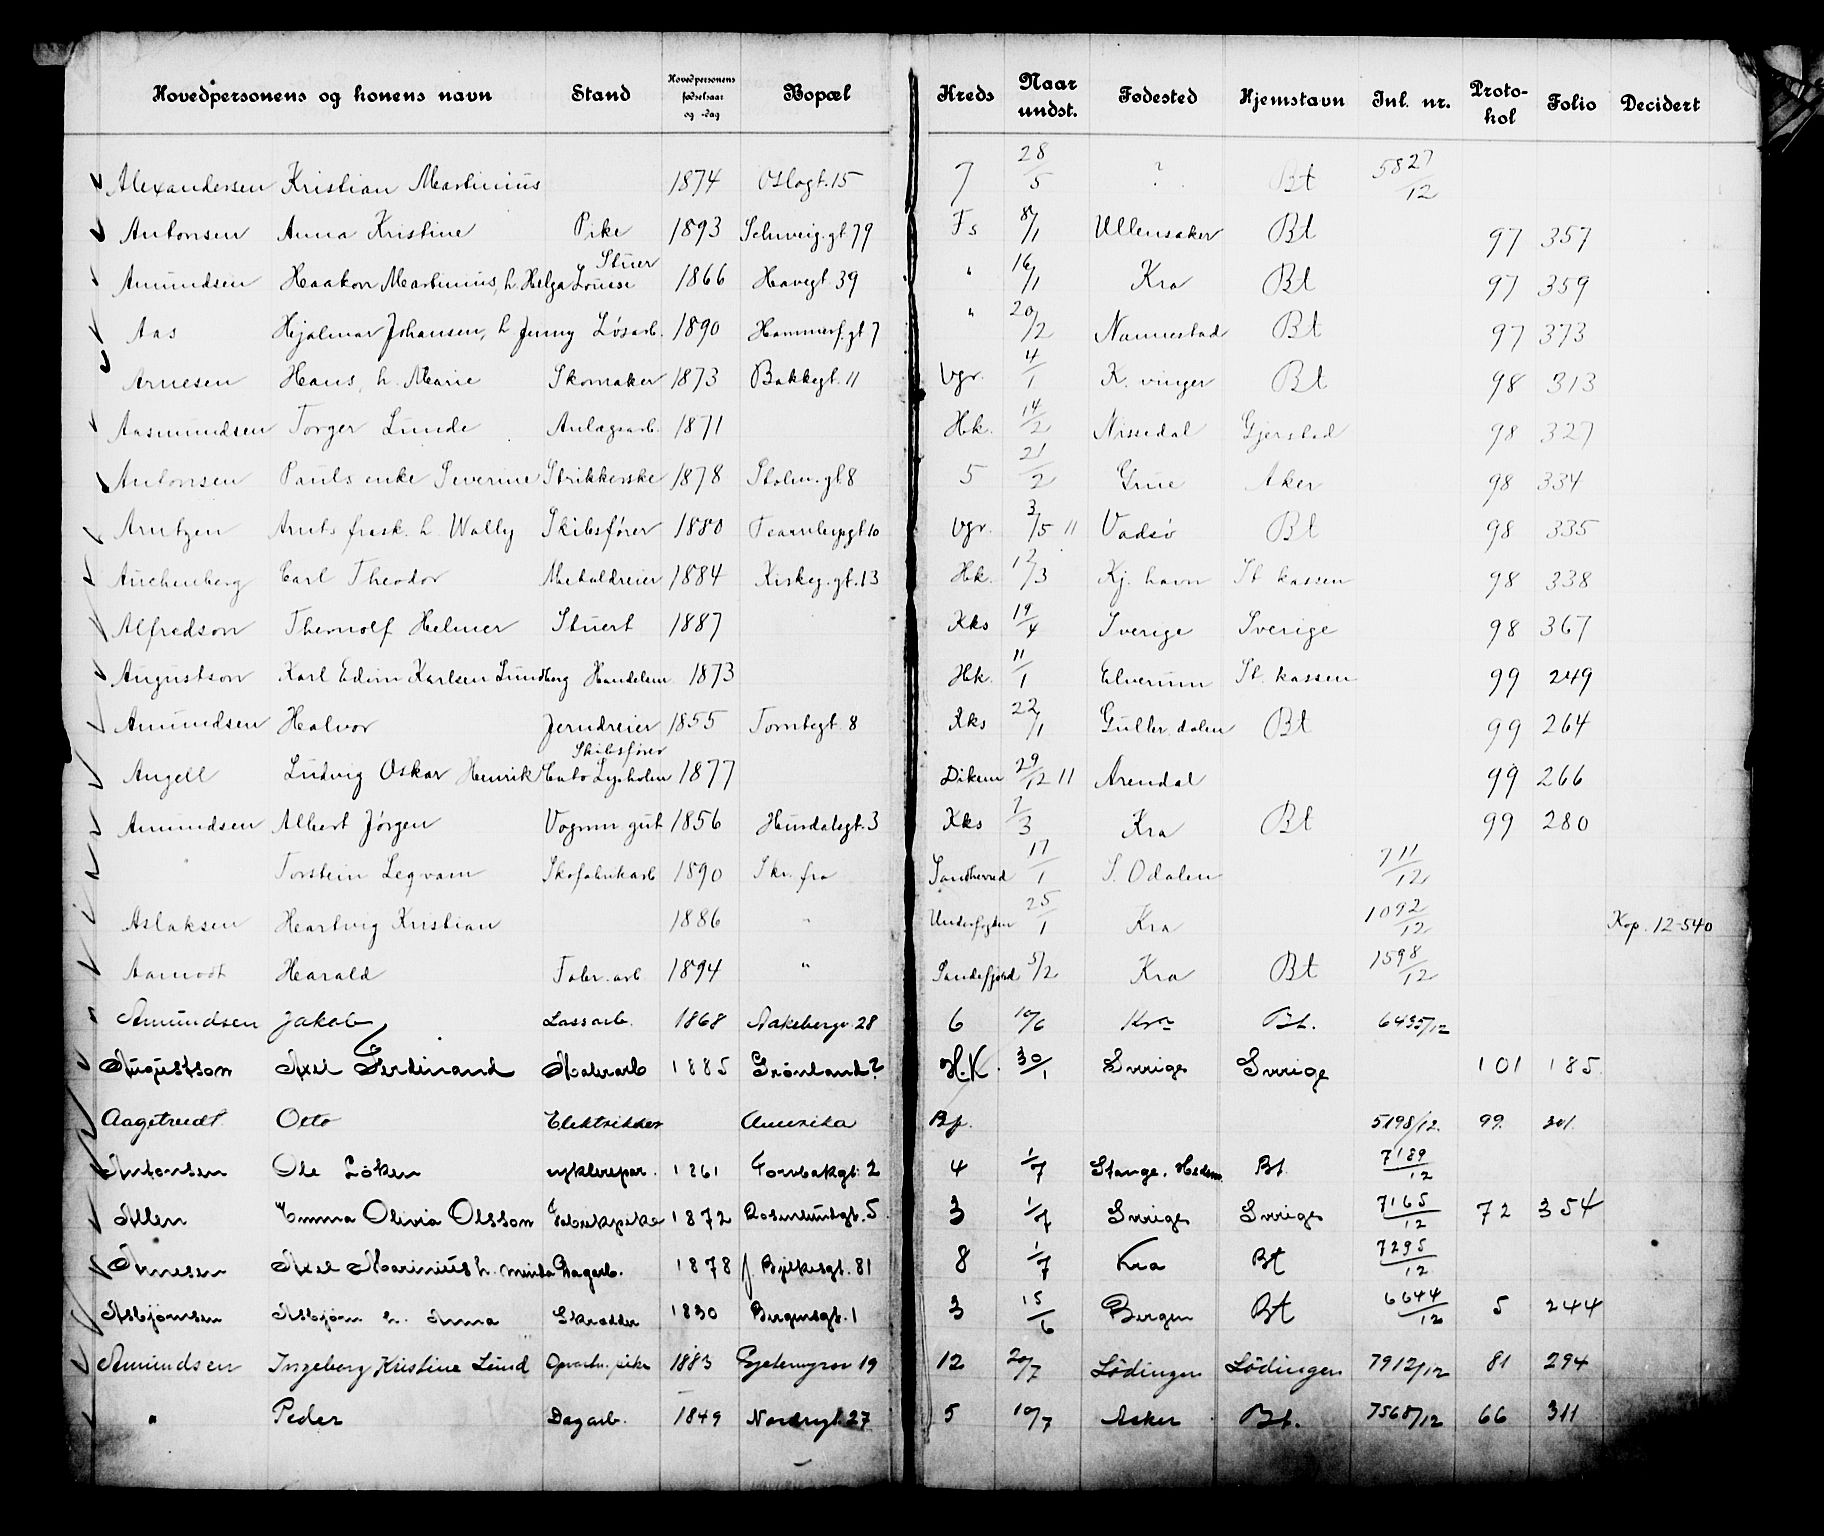 Hovedpersonens og konens navn Stand Hovedpersonens fødselsaar og -dag Bopæl Kreds Naar undst. Fødested Hjemstavn Inl. nr. Protokol Folio Decidert
Alexandersen Kristian Martinius 1874 Oslogt. 15 7 28/5 ? Bt 5827/12
Antonsen Anna Kristine Pike 1893 Schweig.gt. 79 Fs 8/1 Ullensaker Bt 97 357
Amundsen Haakon Martinius, h. Helga Louise Stuer 1866 Havegt. 39 " 16/1 Kra Bt 97 359
Aas Hjalmar Johansen, h Jenny Løsarb. 1890 Hammerf.gt 7 " 20/2 Nannestad Bt 97 373
Arnesen Hans, h. Marie Skomaker 1873 Bakkegt. 11 Vgr. 4/1 K. vinger Bt 98 313
Aasmundsen Torger Lunde Anlægsarb. 1871 Hk. 14/2 Nissedal Gjerstad 98 327
Antonsen Pauls enke Severine Strikkerske 1878 Stolm.gt. 8 5 21/2 Grue Aker 98 334
Arntzen Arnts frask. h. Wally Skibsfører 1880 Vgr. 3/5 11 Vadsø Bt 98 335
Auchenberg Carl Theodor Metaldreier 1884 Kirkeg.gt. 13 Hk. 12/3 Kj. havn St kassen 98 338
Alfredson Thernolf Helmer Stuert 1887 Kks 19/4 Sverige Sverige 98 367
Augustson Karl Edvin Karlsen Lundberg Handelsm. 1873 Hk. 11/1 Elverum St. kassen 99 249
Amundsen Halvor Jerndreier 1855 Tomtegt. 8 Kks 22/1 Guller dalen Bt 99 264
Angell Ludvig Oskar Henrik Cato Lysholm Skibsfører 1877 Dikem 29/12 11 Arendal 99 266
Amundsen Albert Jørgen Vognm gut 1856 Hurdalsgt. 3 Kks 7/3 Kra Bt 99 280
" Torstein Legvam Skofabrikarb 1890 Skr. fra Sandherred 17/1 S. Odalen 711/12
Aslaksen Hartvig Kristian 1886 " Underfogden 25/1 Kra 1092/12 Kop. 12-540
Aamodt Harald Fabr. arb 1894 " Sandefjord 5/2 Kra Bt 1598/12
Amundsen Jakob Lossarb. 1868 Aakebergv. 28 6 10/6 Kra Bt. 6435/12
Augustson Axel Ferdinand Malerarb 1885 Grønland ? H.K. 30/1 Sverige Sverige 101 185
Aagetvedt Otto Elektriker Amerika Bf. 5198/12. 99. 301.
Antonsen Ole Løken cyklerepar. 1861 Tombakgt. 2 4 1/7 Stange. Hedem. Bt. 7189/12
Allen Emma Olivia Olsson Fabrikpike 1872 Rosenlundgt. 5 3 1/7 Sverige Sverige 7165/12 72 354
Arnesen Axel Marinius h. Minda Dagarb. 1878 f. Bjelkesgt. 81 8 1/7 Kra Bt 7295/12
Asbjørnsen Asbjørn h. Anna Skrædder 1830 Bergensgt. 1 3 15/6 Bergen Bt 6644/12 5 244
Amundsen Ingeborg Kristine Lund Opvartn. pike 1883 Gjetemyrsv 19 12 20/7 Lödingen Lödingen 7912/12 81 294
" Peder Dagarb. 1849 Nordregt. 27 5 10/7 Asker Bt. 7568/12 66 311